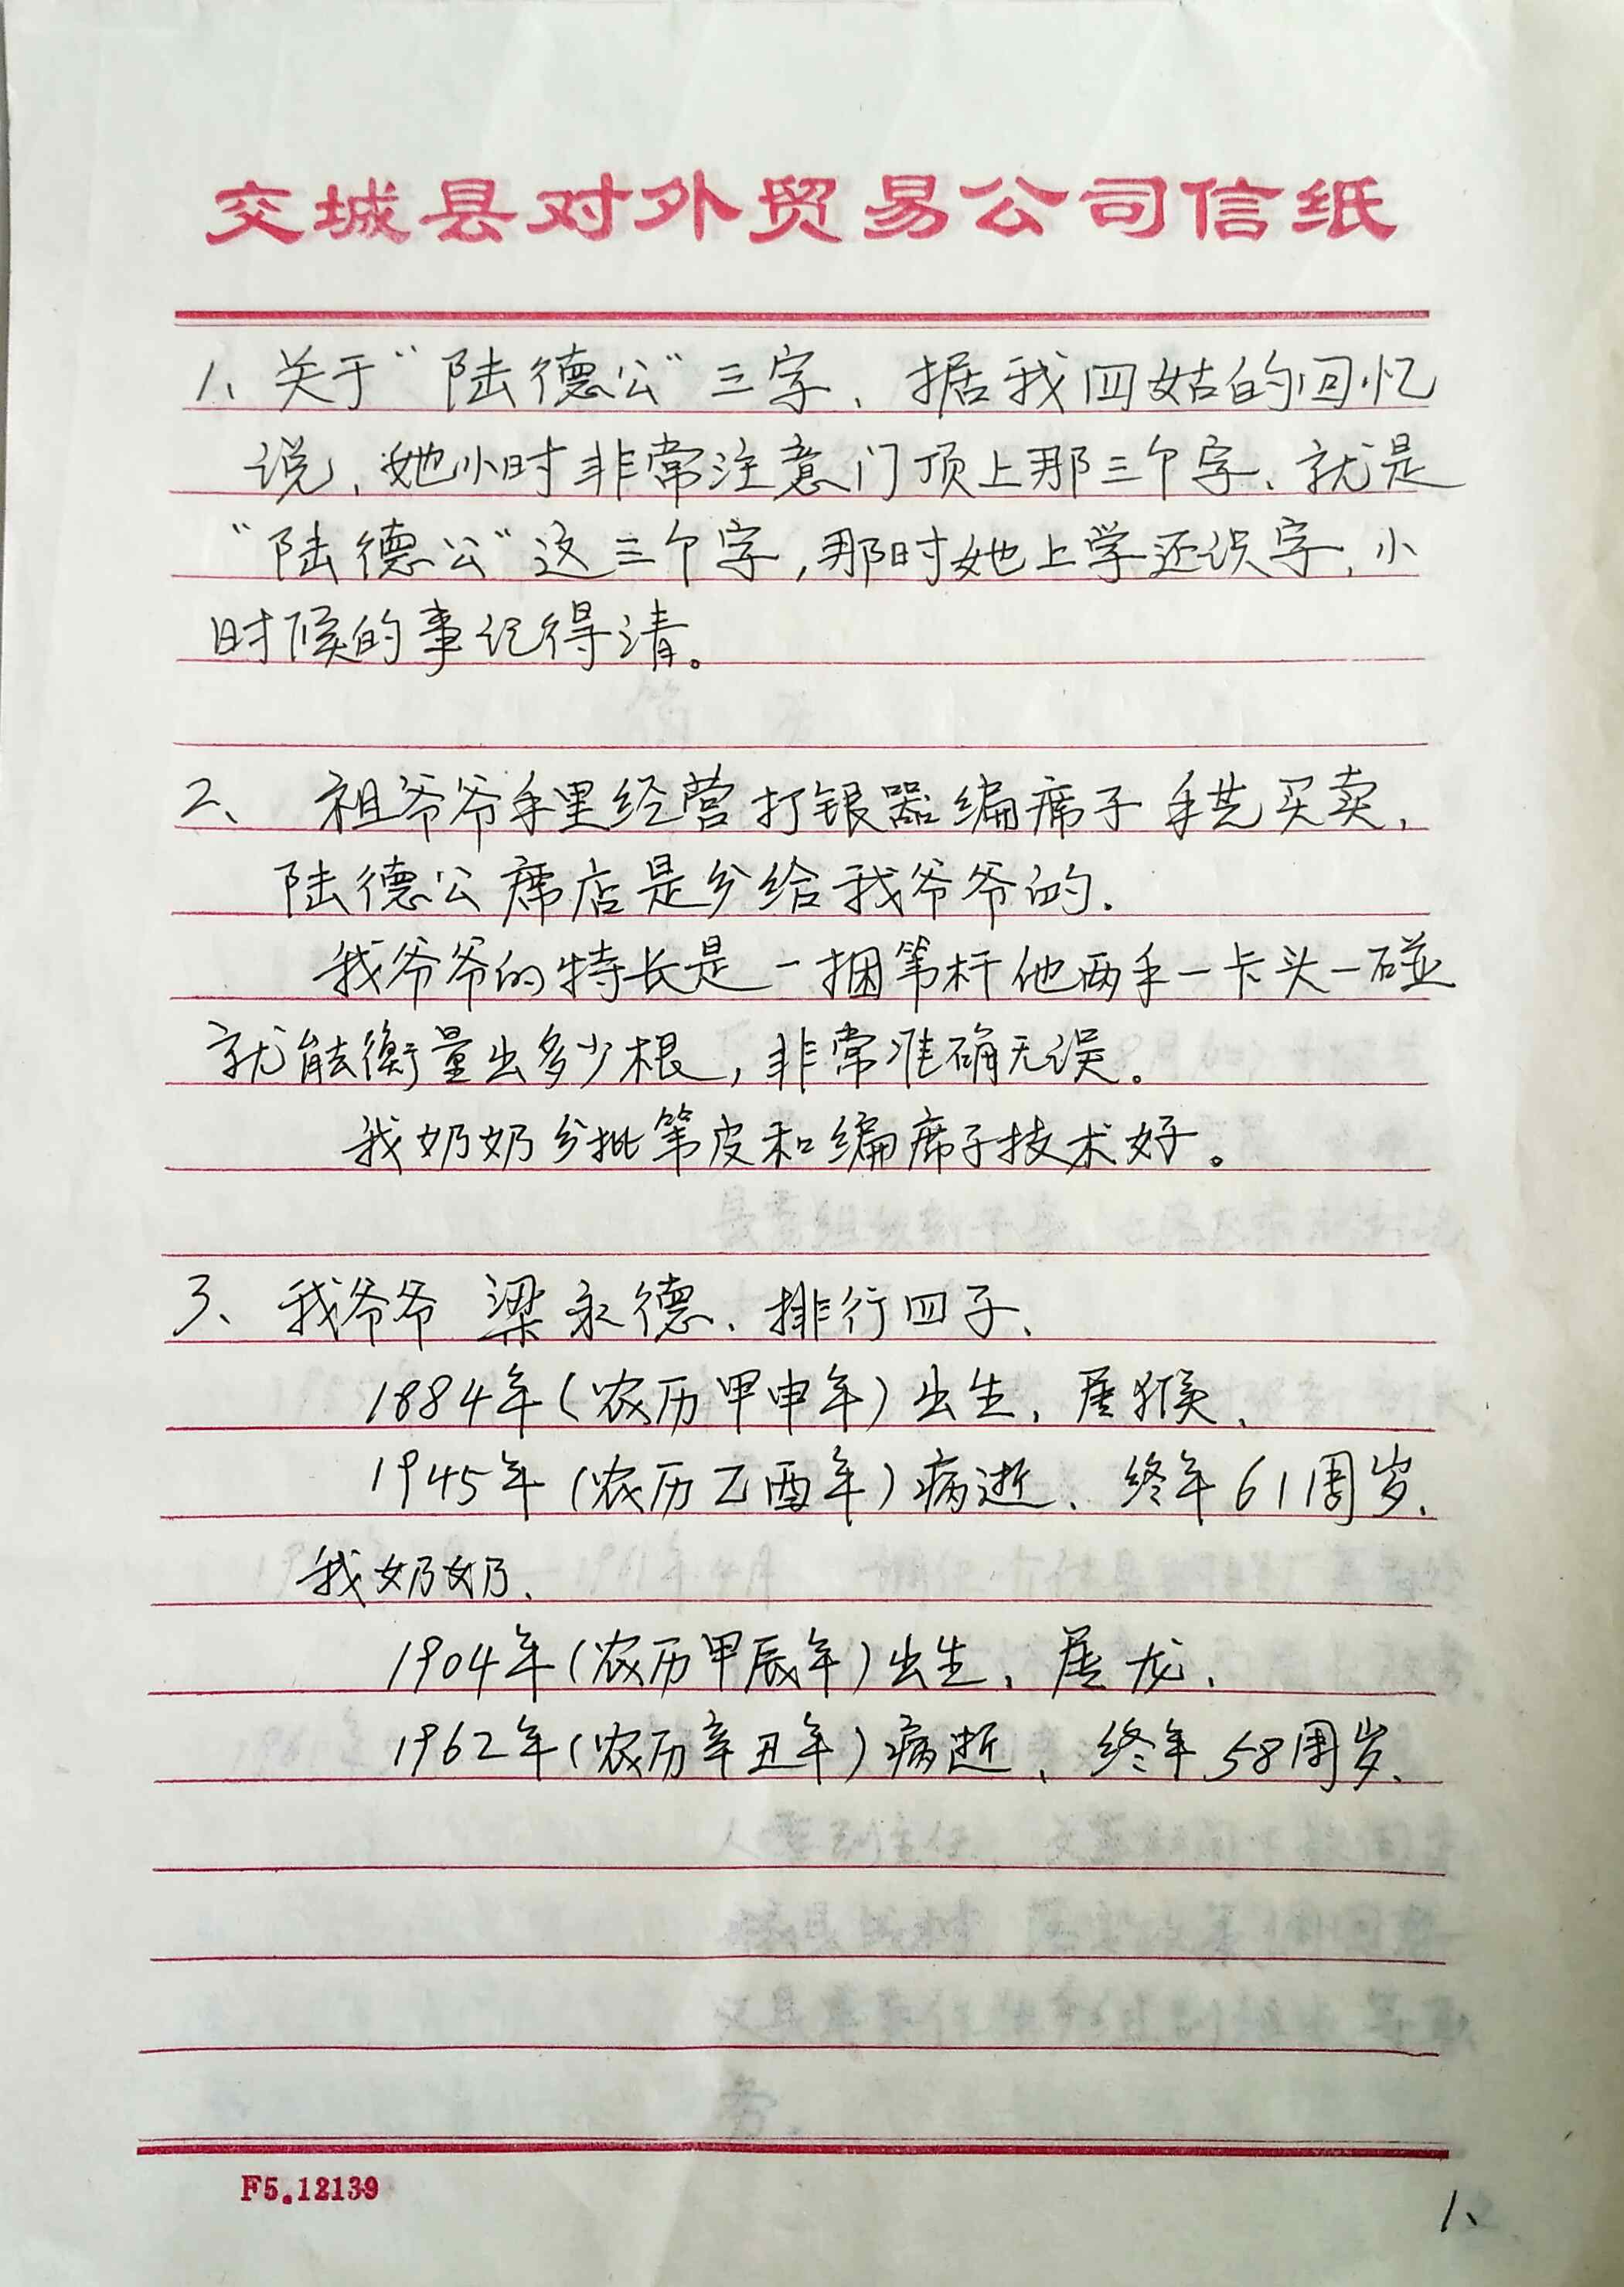 交城县对外贸易公司信纸
1、关于“陆德公”三字、据我四姑的回忆
说,她小时非常注意门顶上那三个字、就是
“陆德公”这三个字,那时她上学还识字,小
时候的事记得清。
2、祖爷爷手里经营打银器编席子手艺买卖,
陆德公席店是分给我爷爷的.
我爷爷的特长是一捆苇杆他两手一卡头一碰
就能衡量出多少根,非常准确无误。
我奶奶分批苇皮和编席子技术好。
3、我爷爷 梁永德、排行四子、
1884年(农历甲申年)出生,属猴、
1945年(农历乙酉年)病逝、终年61周岁.
我奶奶、
1904年(农历甲辰年)出生,属龙,
1962年(农历辛丑年)病逝、终年58周岁、
F5.12139
1、